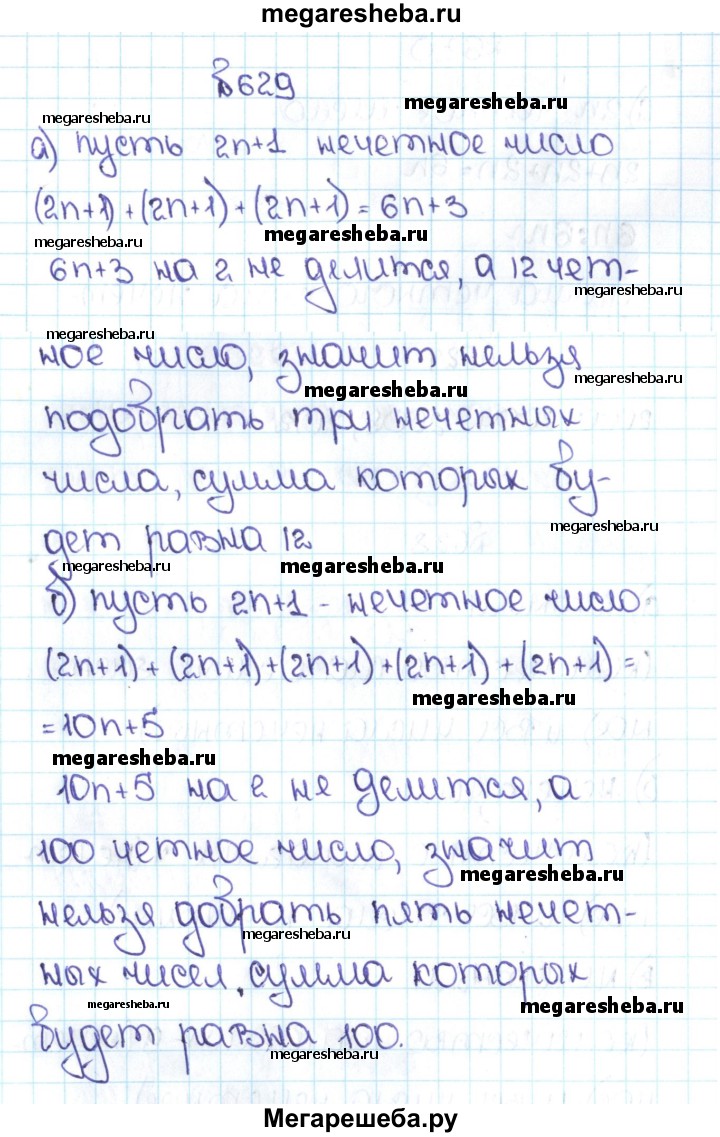 megaresheba.ru
№629
megaresheba.ru
megaresheba.ru
а) пусть 2n+1 нечетное число
(2n+1)+(2n+1)+(2n+1)=6n+3
megaresheba.ru
megaresheba.ru
6n+3 на 2 не делится, а 12 чет-
megaresheba.ru
megaresheba.ru
ное число, значит нельзя
megaresheba.ru
megaresheba.ru
подобрать три нечетных
числа, сумма которых бу-
megaresheba.ru
дет равна 12
megaresheba.ru
megaresheba.ru
б) пусть 2n+1 - нечетное число
(2n+1)+(2n+1)+(2n+1)+(2n+1)+(2n+1)=
megaresheba.ru
=10n+5
megaresheba.ru
10n+5 на 2 не делится, а
100 четное число, значит
megaresheba.ru
нельзя добрать пять нечет-
megaresheba.ru
ных чисел, сумма которых
megaresheba.ru
megaresheba.ru
будет равна 100.
megaresheba.ru
Мегарешеба.ру